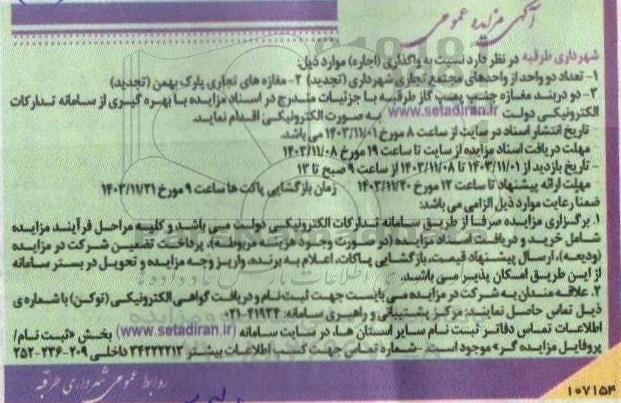 آگهی مزایده عمومی
شهرداری طرقبه در نظر دارد نسبت به واگذاری (اجاره) موارد ذیل:
۱- تعداد دو واحد از واحدهای مجتمع تجاری شهرداری (تجدید) ۲- مغازه های تجاری پارک بهمن (تجدید)
۳- دو دربند مغازه جنب پمپ گاز طرقبه با جزئیات مندرج در اسناد مزایده با بهره گیری از سامانه تدارکات
الکترونیکی دولت www.setadiran.ir به صورت الکترونیکی اقدام نماید.
تاریخ انتشار اسناد در سایت از ساعت ۸ مورخ ۱۴۰۳/۱۱/۰۱ می باشد.
مهلت دریافت اسناد مزایده از سایت تا ساعت ۱۹ مورخ ۱۴۰۳/۱۱/۰۸
- تاریخ بازدید از ۱۴۰۳/۱۱/۰۱ تا ۱۴۰۳/۱۱/۰۸ از ساعت ۹ صبح تا ۱۳
مهلت ارائه پیشنهاد تا ساعت ۱۳ مورخ ۱۴۰۳/۱۱/۲۰ زمان بازگشایی پاکت ها ساعت ۹ مورخ ۱۴۰۳/۱۱/۲۱
ضمنا رعایت موارد ذیل الزامی می باشد:
۱. برگزاری مزایده صرفا از طریق سامانه تدارکات الکترونیکی دولت می باشد و کلیه مراحل فرآیند مزایده
شامل خرید و دریافت اسناد مزایده (در صورت وجود هزینه مربوطه)، پرداخت تضمین شرکت در مزایده
(ودیعه)، ارسال پیشنهاد قیمت، بازگشایی پاکات، اعلام به برنده، واریز وجه مزایده و تحویل در بستر سامانه
از این طریق امکان پذیر می باشد.
۲. علاقه مندان به شرکت در مزایده می بایست جهت ثبت نام و دریافت گواهی الکترونیکی (توکن) با شماره ی
ذیل تماس حاصل نمایند: مرکز پشتیبانی و راهبری سامانه: ۴۱۹۳۴-۰۲۱
اطلاعات تماس دفاتر ثبت نام سایر استان ها، در سایت سامانه (www.setadiran.ir) بخش «ثبت نام/
پروفایل مزایده گر» موجود است - شماره تماس جهت کسب اطلاعات بیشتر ۳۴۲۲۲۲۱۳ داخلی ۲۰۹-۲۳۶-۲۵۲
روابط عمومی شهرداری طرقبه
۱۰۷۱۵۴